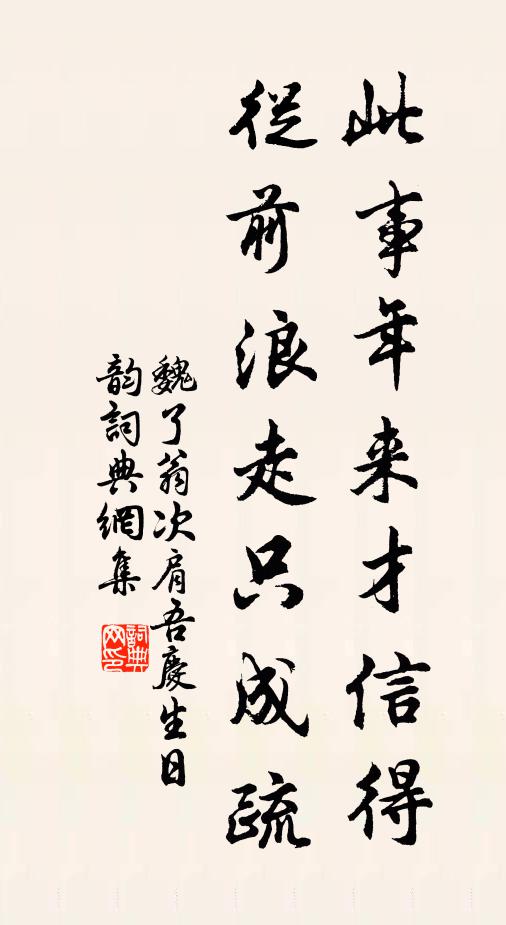 此事年来才信得
從前浪走只成疏
魏了翁次肩吾慶生日
韵詞典網集
詞典
网印